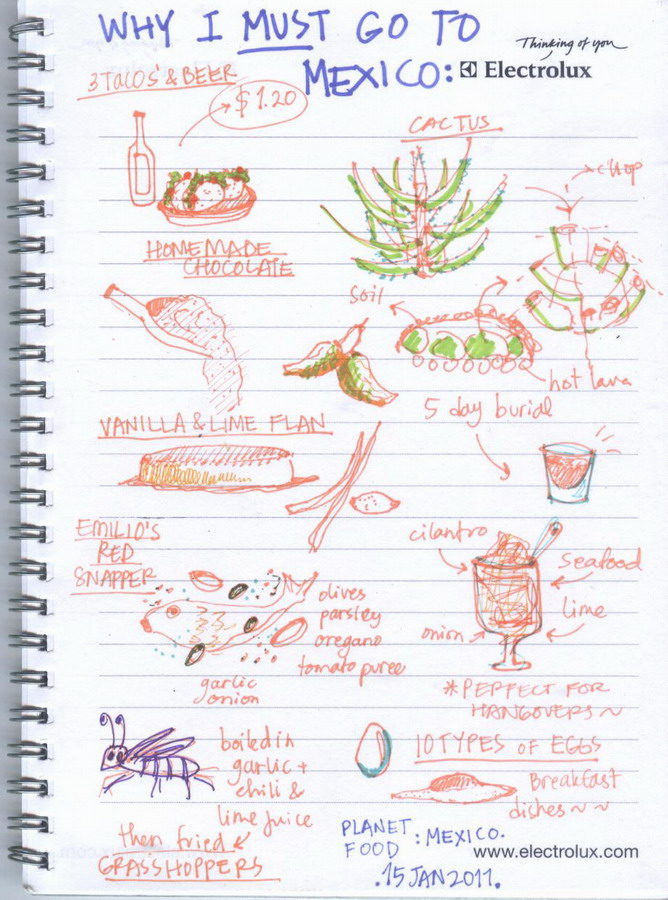 WHY I MUST GO TO
MEXICO:
Thinking of you
Electrolux
3 TACOS & BEER
$1.20
CACTUS
chop
HOMEMADE
CHOCOLATE
soil
hot lava
5 day burial
VANILLA & LIME FLAN
EMILIO'S
RED
SNAPPER
olives
parsley
oregano
tomato puree
garlic
onion
cilantro
seafood
lime
onion
*PERFECT FOR
HANGOVERS ~
boiled in
garlic +
chili &
lime juice
then fried
GRASSHOPPERS
10 TYPES OF EGGS
Breakfast
dishes ~ ~
PLANET
FOOD : MEXICO.
.15 JAN 2011.
www.electrolux.com